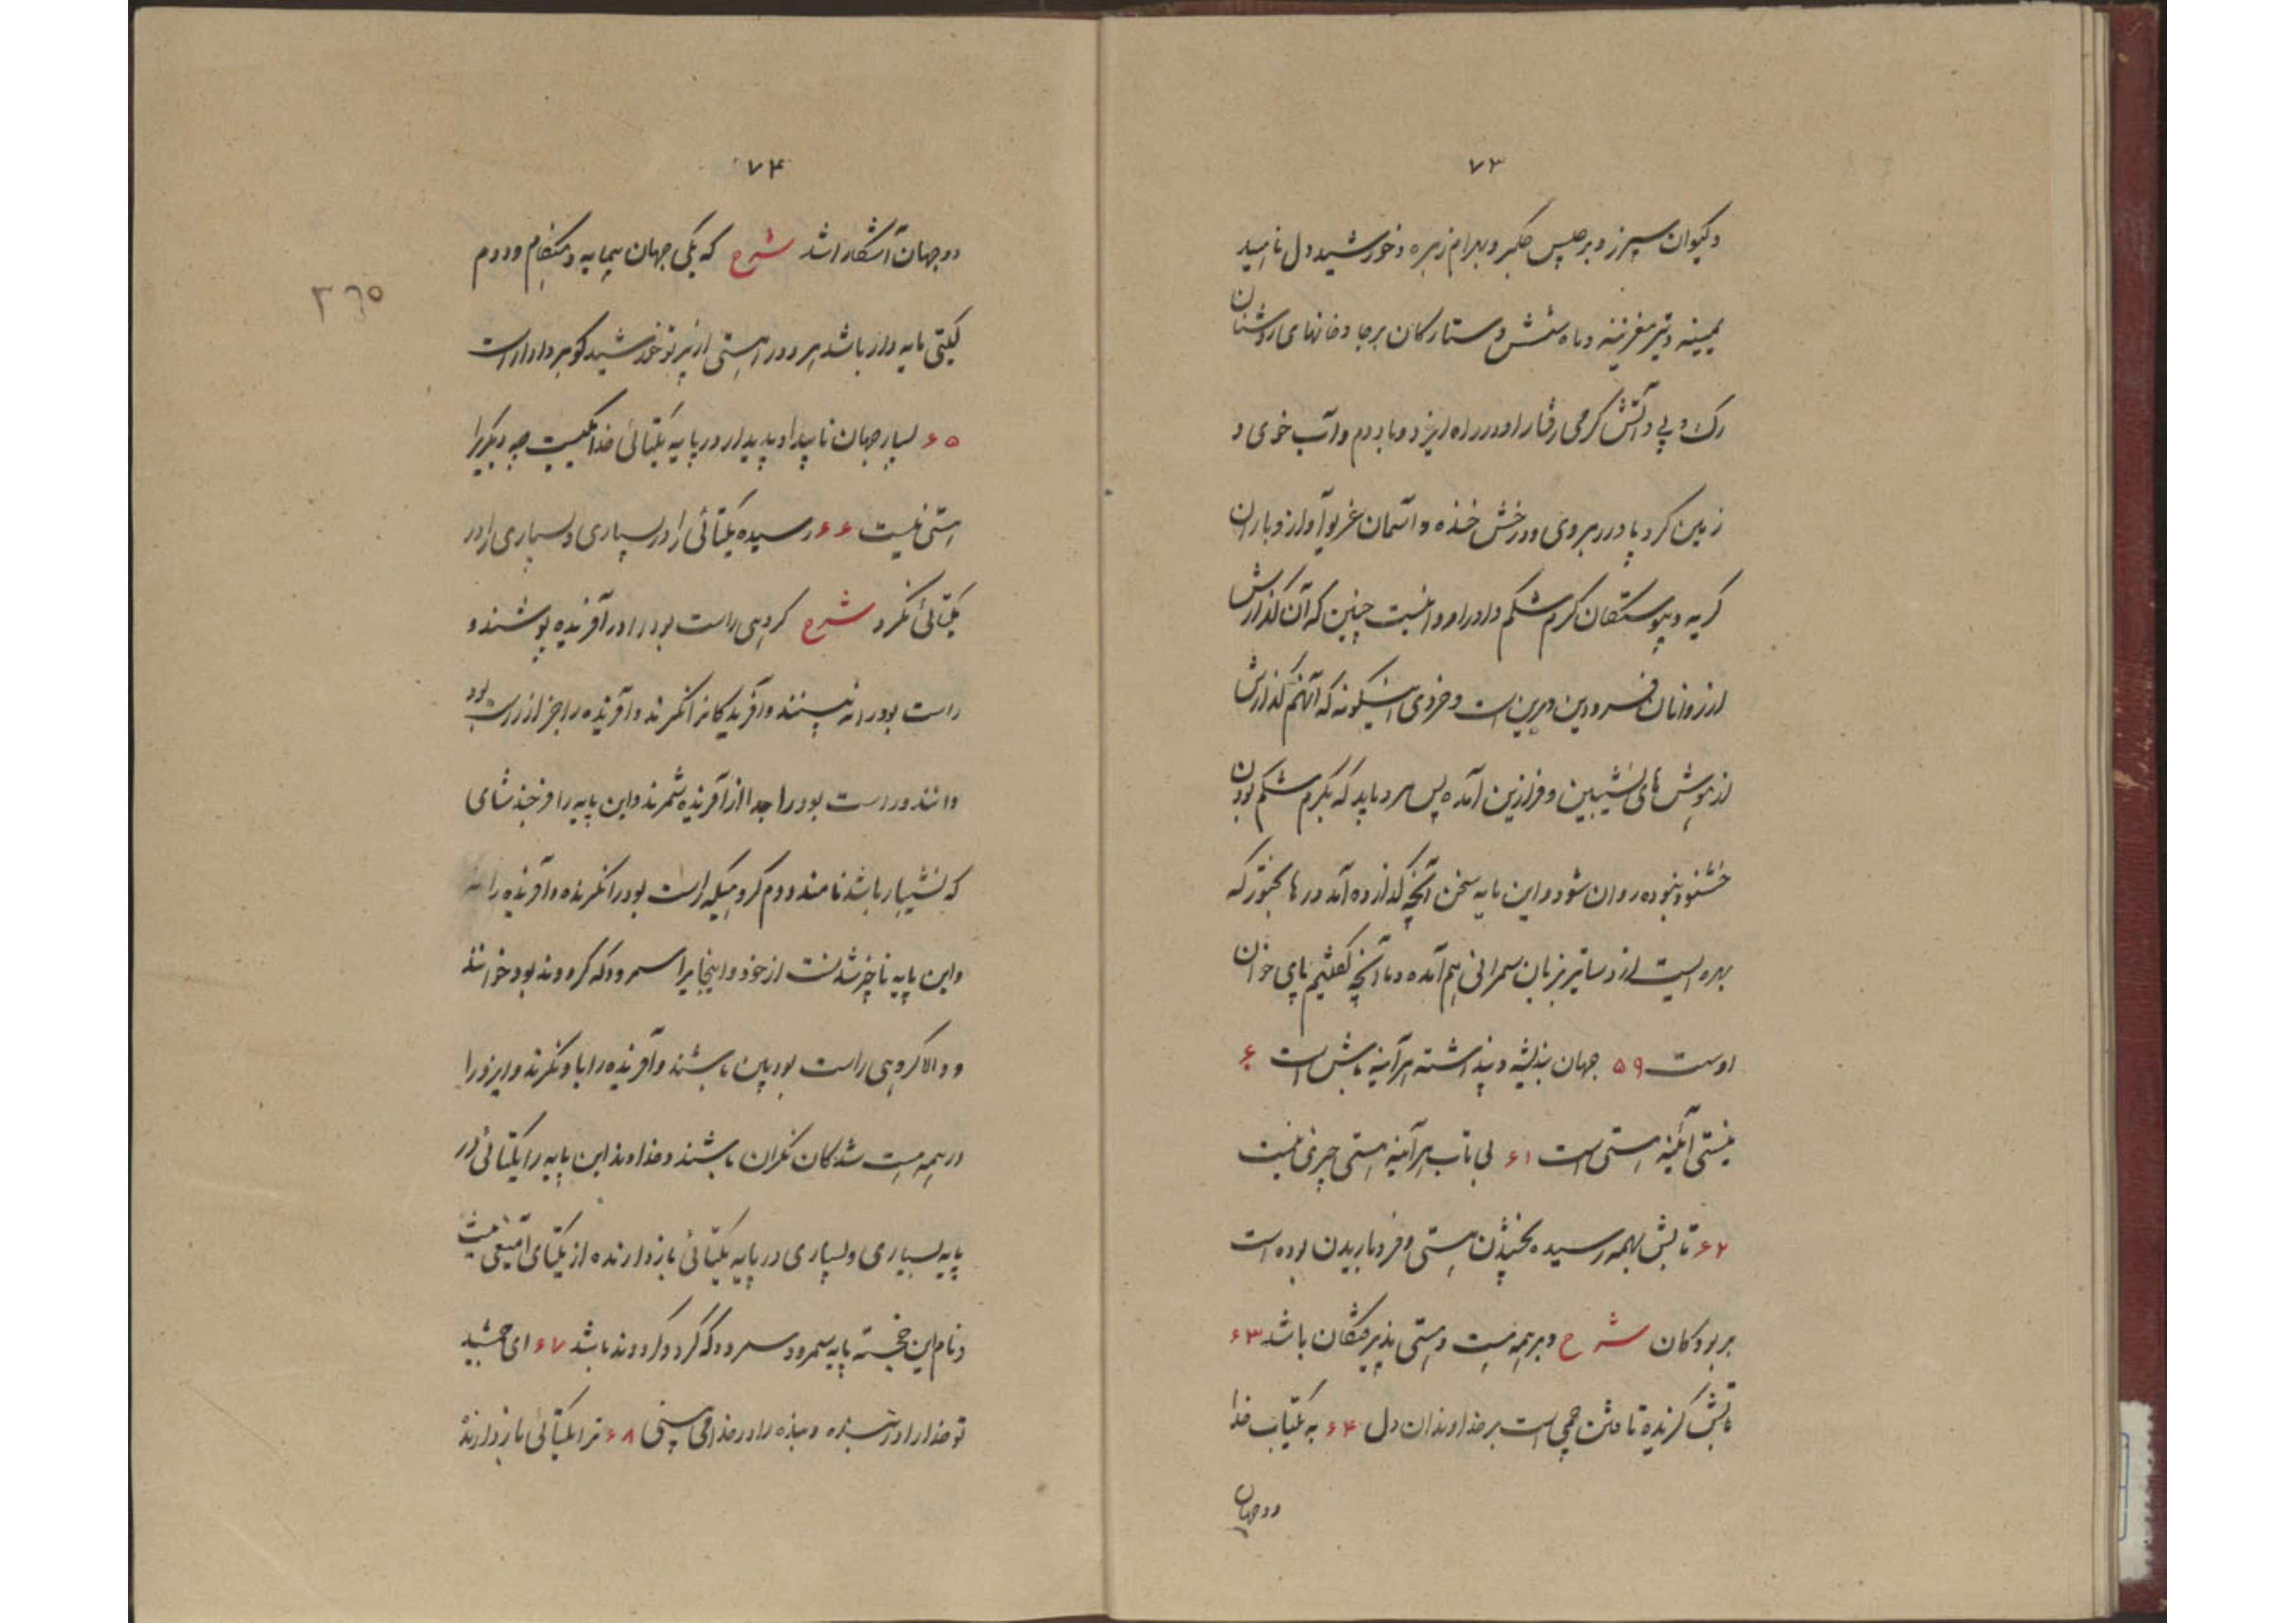 ۷۳
و کیوان سپرز و برجیس جگر و بهرام زهره و خورشید دل ناهید
معده و تیر مغز و ماه شش و ستارگان برجا و خانهای روشنان
رگ و پی و آتش گرمی رفتار او در راه ایزد و باد دم و آب خوی و
زمین گرد پا در رهروی و درخش خنده و آسمان غریو آواز و باران
گریه و پیوستگان کرم شکم و او را روانست چنین که آن گذارش
از روانان فرودین و برین است و خردی است اینگونه که آنهم گذارش
از هوش های نشیبین و فرازین آمده پس مرد باید که بکرم شکم بودن
خشنود نبوده روان شود و این مایه سخن آنچه گذارده آمد در
بهره ایست از دساتیر بزبان سمرانی هم آمده و ما آنچه گفتیم پای خوان
اوست ۵۹ جهان اندیشه و پنداشته هرآینه تابش است ۶۰
نیستی آئینه هستی است ۶۱ بی تاب هرآینه هستی چیزی نیست
۶۲ تابش بهمه رسیده بخشیدن هستی و فروباریدن بوده است
بر بودگان شرح و بر همه هست و هستی پذیرفتگان باشد ۶۳
تابش گرنده تافتن است بر خداوندان دل ۶۴ به یکتاب خدا
دو جهان
۷۴
دو جهان آشکارا شد شرح که یکی جهان بیمایه و هنگام و دوم
گیتی مایه دار باشد هر دو را هستی از پرتو خورشید گوهر دادار است
۶۵ بسیار جهان ناپیدا و پدیدار در پایه یکتائی خدا یکیست چه دیگریرا
هستی نیست ۶۶ رسیده یکتائی را در بسیاری و بسیاری را در
یکتائی نگرد شرح گروهی راست بود را در آفریده پوشند و
راست بود را نه بینند و آفریدگانرا نگرند و آفریننده را جز از راست بود
دانند و راست بود را جدا از آفریده شمرند و این پایه را فرجند شای
که نشیبار باشد نامند دوم گروهیکه راست بود را نگرنده و آفریده را نه
و این پایه ناچیز شدنست از خود و اینجا را سمرود که گردوند بود خوانند
و والا گروهی راست بود بین باشند و آفریده را با او نگرند و ایزد را
در همه هست شدگان نگران باشند و خداوند این پایه را یکتائی در
پایه بسیاری و بسیاری در پایه یکتائی بازدارنده از یکتای آمیغی نیست
و نام این خجسته پایه سمرود سمرود که گرد گردوند باشد ۶۷ ای جمشید
تو خدا را در بنده و بنده را در خدا می بینی ۶۸ ترا یکتائی بازدارنده
۳۶۵